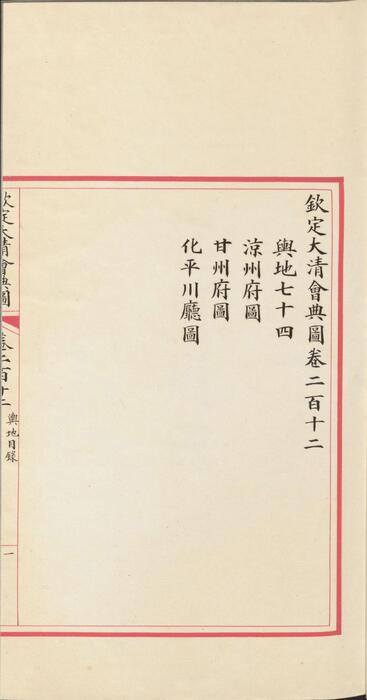 欽定大清會典圖卷二百十二
輿地七十四
涼州府圖
甘州府圖
化平川廳圖
欽定大清會典圖
卷二百十二
輿地目錄
一